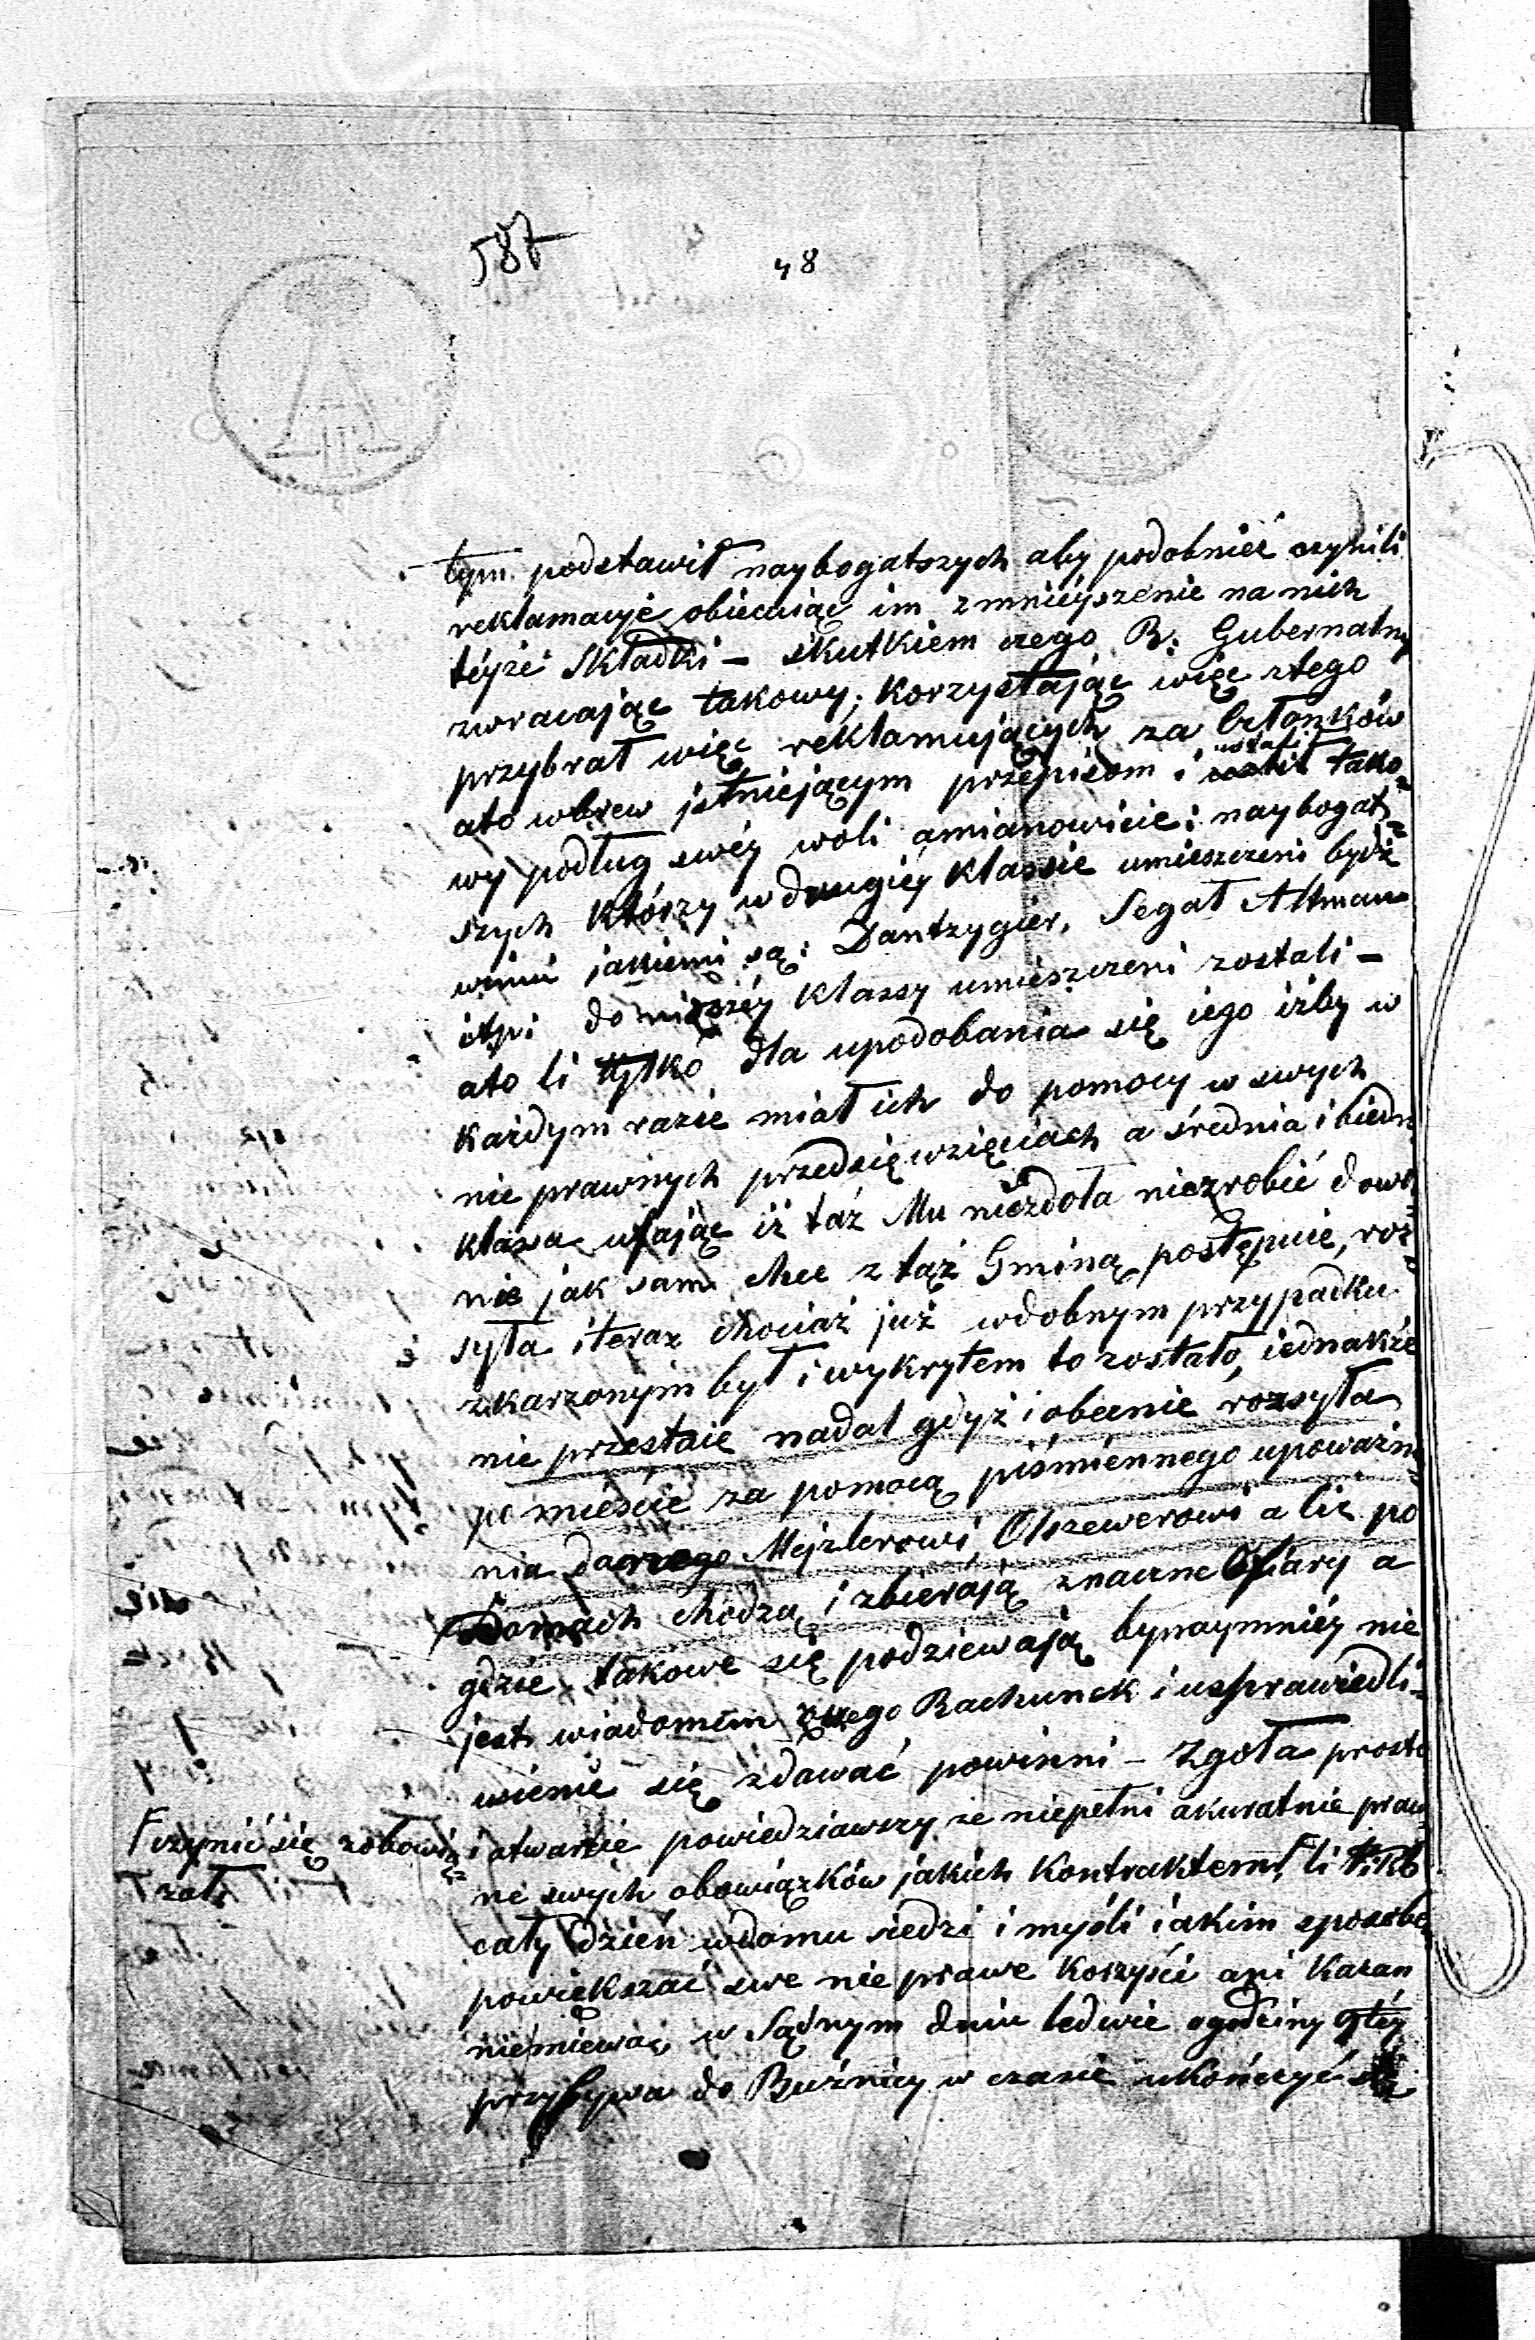 587
48
tym podstawił naybogatszych aby podobnież czynili
reklamacyie obiecuiąc im zmnieyszenie na nich
téyże Składki – skutkiem czego R: Gubernatny
zwracając takowy; korzystając więc ztego
przybrał więc reklamujących za Członków
ato wbrew jstniejącym przepisom i ustalił tako-
wy podług swéy woli amianowicie: naybogat-
szych którzy wdrugiéy klassie umieszczeni bydź
winni jakiemi są: Dantzygier, Segał Altman
itp: do niższéy klassy umieszczeni zostali –
ato li tylko dla upodobania się iego iżby w
każdym razie miał ich do pomocy w swych
nie prawnych przedsięwzięciach a średnia i biedn
klassa ufając iż táż Mu niezdoła niezrobić dowol
nie jak sam chce z tąż Gminą postępuie, roz-
syła iteraz chociaż już wdobnym przypadku
zkarzonym był i wykrytem to zostało, iednakże
nie przestaie nadal gdyż i obecnie rozsyła
po mieście za pomocą piśmiennego upoważnie-
nia danego Mejzlerowi, Olszewerowi a ci po
Domach chodzą i zbierają znaczne Ofiary a
gdzie takowe się podziewają bynaymniéy nie
jest wiadomem zczego Rachunek i usprawiedli-
wienie się zdawać powinni – Zgoła prosto
i otwarcie powiedziawszy ze niepełni akuratnie praw-
ne swych obowiązków jakich kontraktem F li tilko
cały dzień wdomu siedzi i myśli iakim sposobem
powiększać swe nie prawe korzyści ani kazan
niemiewaiąc w Sądnym dniu ledwie ogodziny 9téy
przybywa do Bużnicy w czasie ukończyć
F czynić się zobowią-
zał